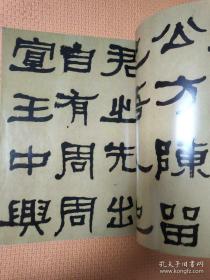 公方陳留
君之先出
自有周周
宣王中興
孔夫子旧书网